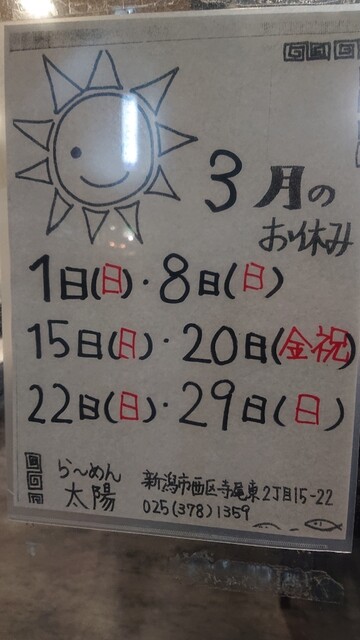 3月の
お休み
1日(日)・8日(日)
15日(日)・20日(金祝)
22日(日)・29日(日)
らーめん
太陽
新潟市西区寺尾東2丁目15-22
025(378)1359